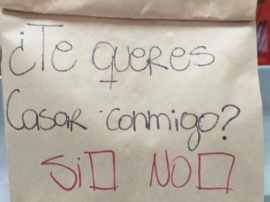 ¿Te queres
Casar conmigo?
Si □ NO □